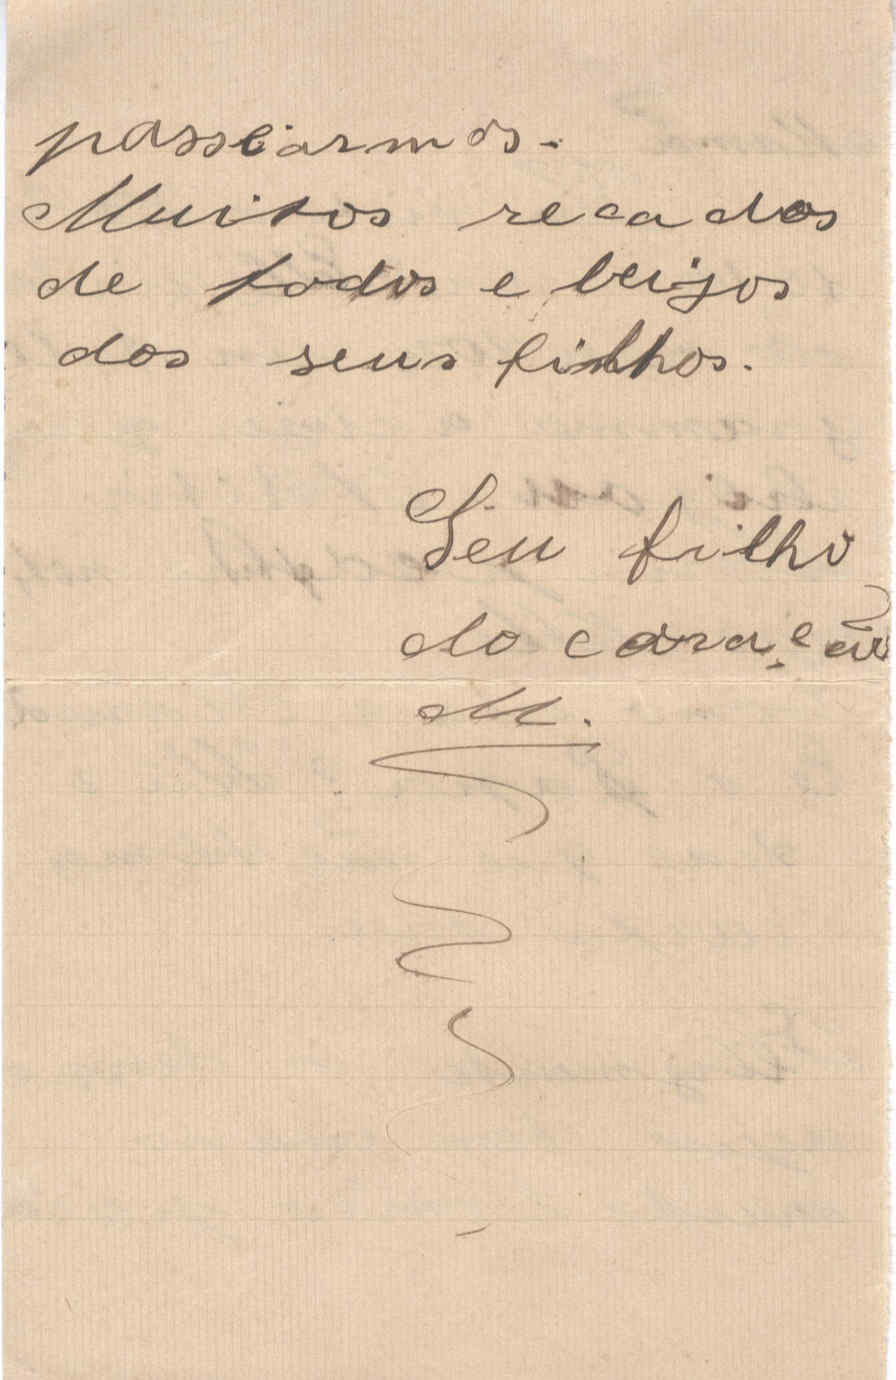 passeiarmos.
Muitos recados
de todos e beijos
dos seus filhos.
Seu filho
do coração
M.